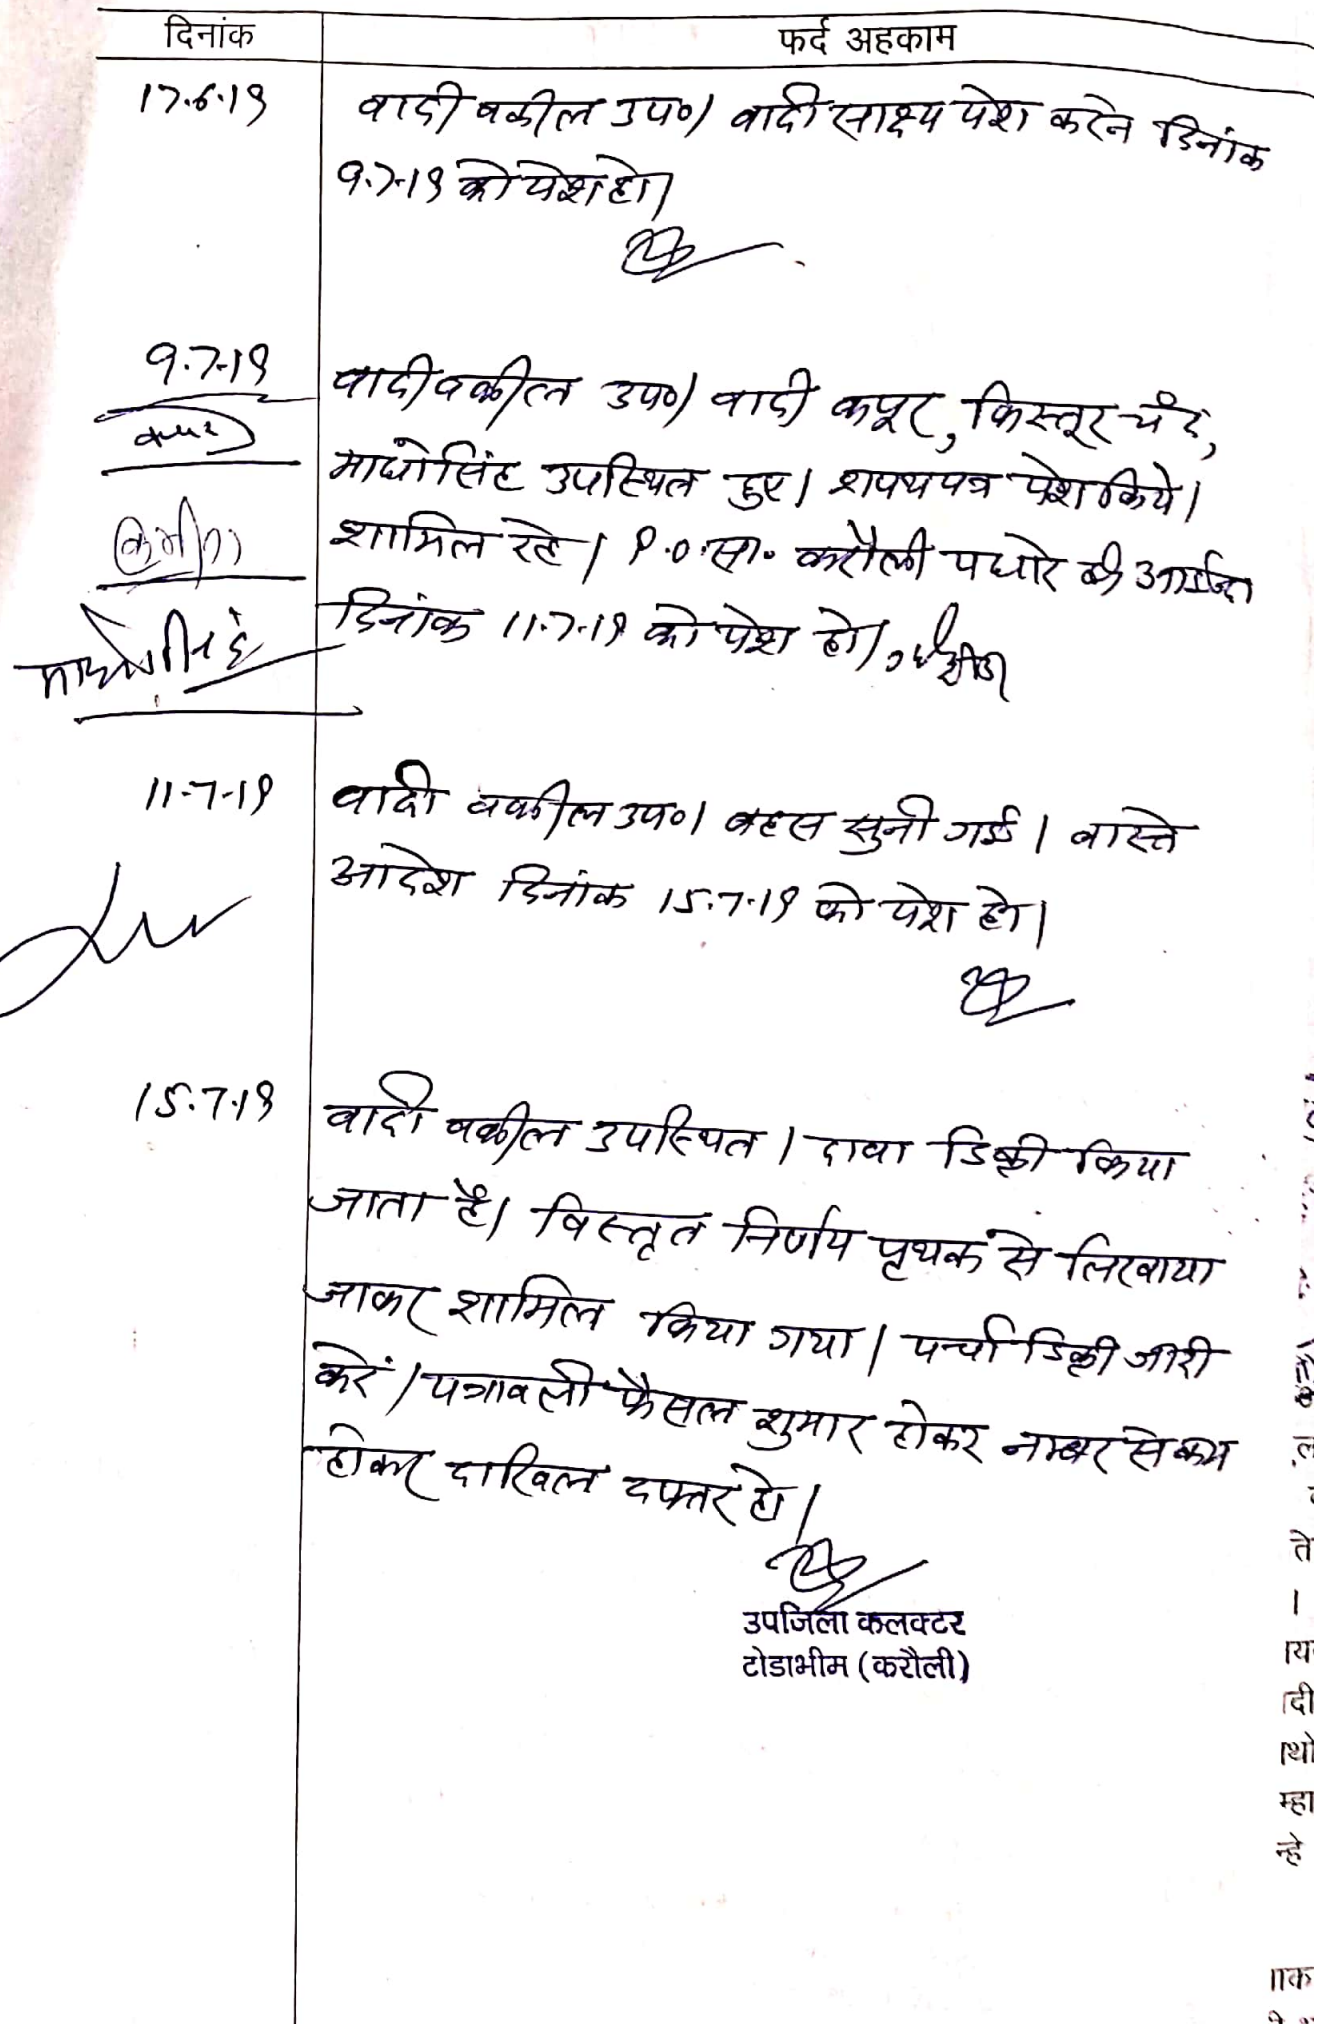 दिनांक
फर्द अहकाम
17.6.19
वादी वकील उप०। वादी साक्ष्य पेश करने दिनांक
9.7.19 को पेश हो।
9.7.19
वादी वकील उप०। वादी कपूर, किस्तूर चंद,
माधोसिंह उपस्थित हुए। शपथपत्र पेश किये।
शामिल रहे। P.O. सा. करौली पधारे
दिनांक 11.7.19 को पेश हो।
कपूर
माधोसिंह
11.7.19
वादी वकील उप०। बहस सुनी गई। वास्ते
आदेश दिनांक 15.7.19 को पेश हो।
15.7.19
वादी वकील उपस्थित। दावा डिक्री किया
जाता है। विस्तृत निर्णय पृथक से लिखाया
जाकर शामिल किया गया। पर्चा डिक्री जारी
करें। पत्रावली फैसल शुमार होकर नम्बर से कम
होकर दाखिल दफ्तर हो।
उपजिला कलक्टर
टोडाभीम (करौली)